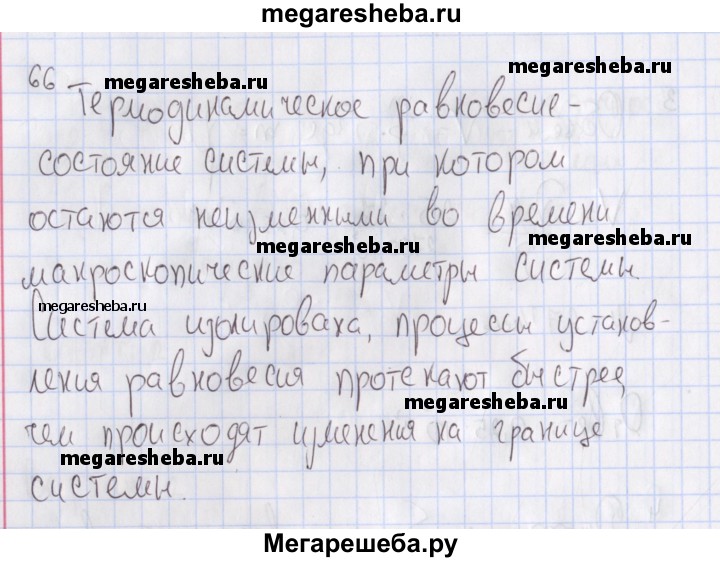 megaresheba.ru
66
megaresheba.ru
megaresheba.ru
Термодинамическое равновесие-
состояние системы, при котором
остаются неизменными во времени
megaresheba.ru
megaresheba.ru
макроскопические параметры системы
megaresheba.ru
Система изолирована, процессы установ-
ления равновесия протекают быстрее,
megaresheba.ru
чем происходят изменения на границе
megaresheba.ru
системы.
Мегарешеба.ру